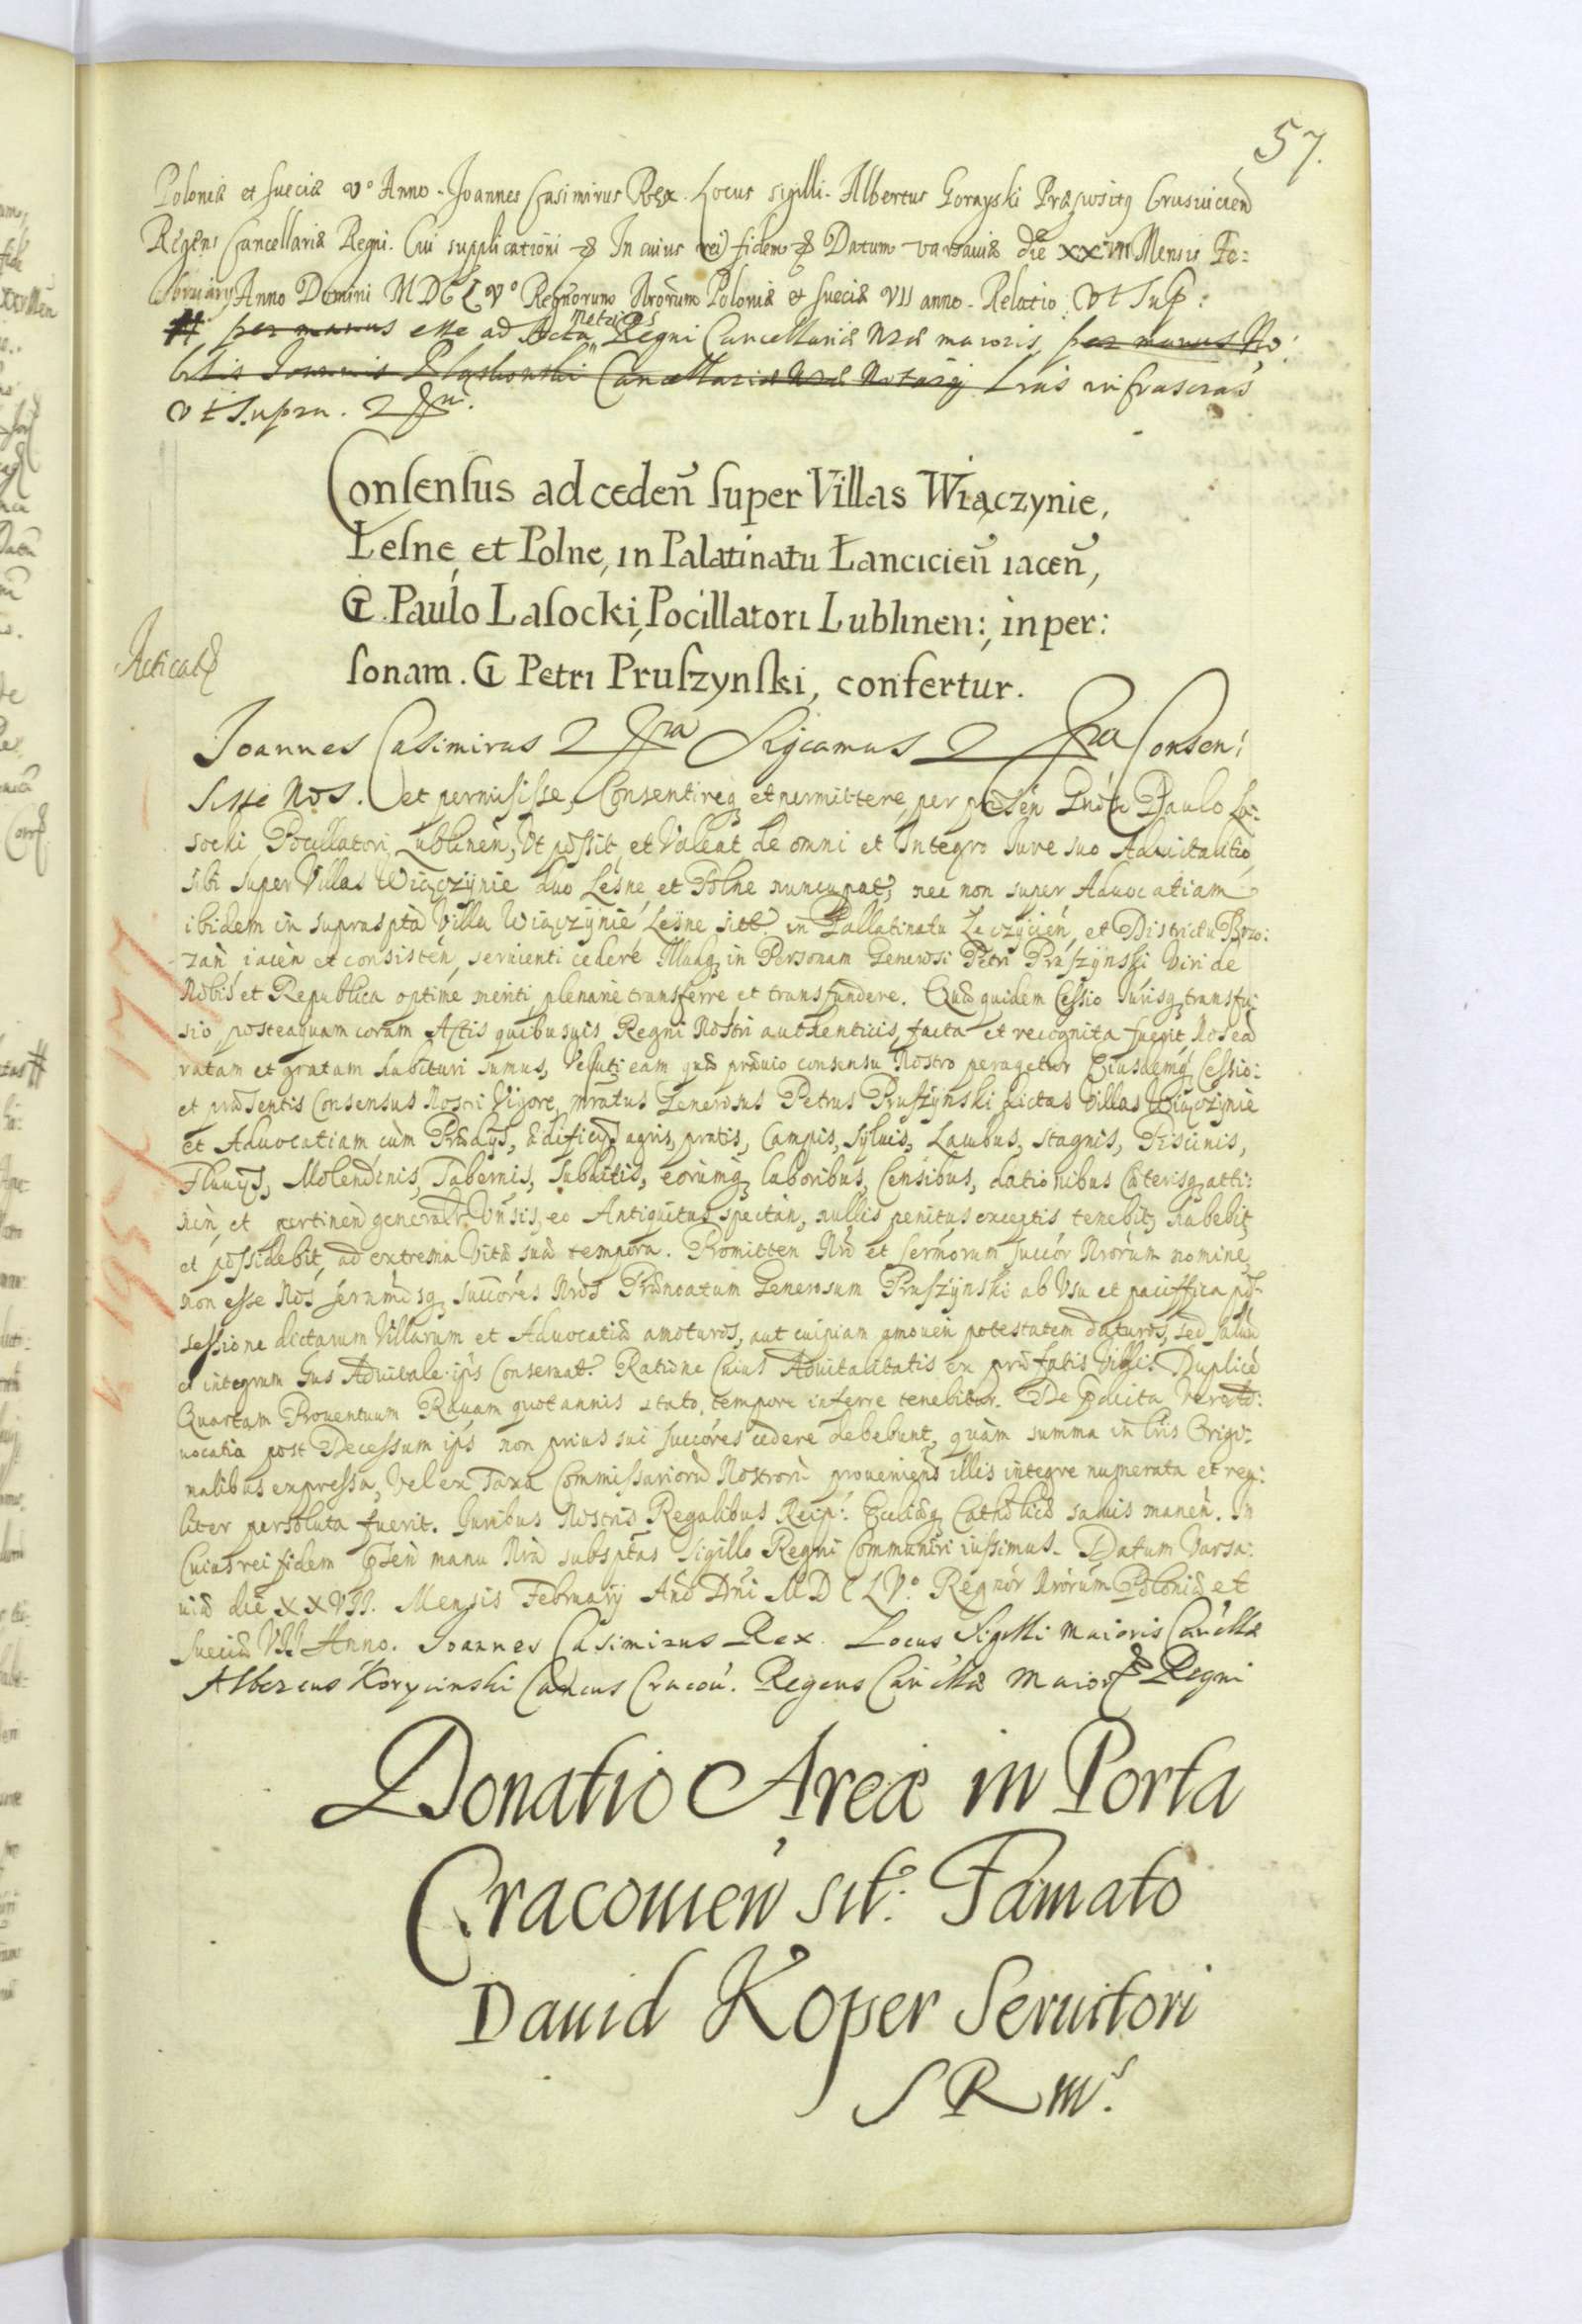 57.
Poloniæ et Sueciæ Vº Anno. Joannes Casimirus Rex. Locus sigilli. Albertus Gorayski Præpositus Crusuicien
Regens Cancellariæ Regni. Cui supplicationi & In cuius rei fidem & Datum Varsauiæ die XXVII Mensis Fe:
bruarij Anno Domini MDCLVº Regnorum Nrorum Poloniæ et Sueciæ VII anno. Relatio Vt Sup:
# per manus esse ad Acta Metrices Regni Cancellariæ Nræ maioris, per manus No:
bilis Joannis Cancellariæ Nræ Notarij Lras infrascras
Vt Supra.
Consensus ad ceden̄ super Villas Wiączynie,
Łesne, et Polne, in Palatinatu Łancicien̄ iacen̄,
G. Paulo Lasocki, Pocillatori Lublinen:, in per:
sonam. G Petri Pruszynski, confertur.
Acticat
Joannes Casimirus Sigcamus Consen:
sisse Nos. et permisisse, Consentireq et permittere, per præsen Gnoso Paulo La:
socki Pocillatori Lublinen, Vt possit, et Valeat de omni et Integro Iure suo Aduitalitio,
sibi super Villas Wiączynie duo Lesne, et Polne nuncupat, nec non super Aduocatiam
ibidem in supraspta Villa Wiączynie Lesne sitt. in Pallatinatu Łęczycien, et Districtu Brze:
zan iacen et consisten, seruienti cedere Illudq in Personam Generosi Petri Pruszynski Viri de
Nobis et Republica optime meriti plenarie transferre et transfundere. Quæ quidem Cessio Iurisq transfu:
sio, posteaquam coram Actis quibusuis Regni Nostri authenticis, facta et recognita fuerit, Nos eā
ratam et gratam habituri sumus, Veluti eam quæ præuio consensu Nostro peragetur Eiusdemq Cessio:
et præsentis Consensus Nostri Vigore, mratus Generosus Petrus Pruszynski dictas Villas Wiączynie
et Aduocatiam cum Prædijs, ædificijs agris, pratis, Campis, Syluis, Lacubus, stagnis, Piscinis,
Fluuijs, Molendinis, Tabernis, Subditis, eorumq laboribus, Censibus, dationibus Cæterisq atti:
nen, et pertinen generalr Vnsis, eo Antiquitus spectan, nullis penitus exceptis tenebit, habebit
et possidebit, ad extrema Vitæ suæ tempora. Promitten Nro et Sermorum Succor Nrorum nomine,
non esse Nos Sermosq Succores Nros Prænoatum Generosum Pruszynski ab Vsu et paciffica pos:
sessione dictarum Villarum et Aduocatiæ amoturos, aut cuipiam amouen potestatem daturos, sed saluū
et integrum Ius Aduitale ipi Conseruat. Ratione Cuius Aduitalitatis ex præfatis Villis Duplicē
Quartam Prouentuum Rauam quotannis stato, tempore inferre tenebitur. De Dicta Vero Ad:
uocatia post Decessum ips non prius sui Succores cedere debebunt, quàm summa in Lris Origi:
nalibus expressa, Vel ex Taxa Commissariorū Nostrorū proueniens illis integre numerata et rea:
liter persoluta fuerit. Iuribus Nostris Regalibus Reip: Eccliæq Catholicæ saluis manen̄. In
Cuius rei fidem pnsen manu Nra subsptas Sigillo Regni Communiri iussimus. Datum Varsa:
uiæ die XXVII. Mensis February Año Dni MDCLVº. Regnor Nrorum Poloniæ et
Sueciæ VII Anno. Joannes Casimirus Rex. Locus Sigilli maioris Cancellæ
Albertus Koryciński Cancus Cracou. Regens Cancellæ Maioris Regni
Donatio Areæ in Porta
Cracouien̄ sit: Famato
Dauid Koper Seruitori
S R Ms.